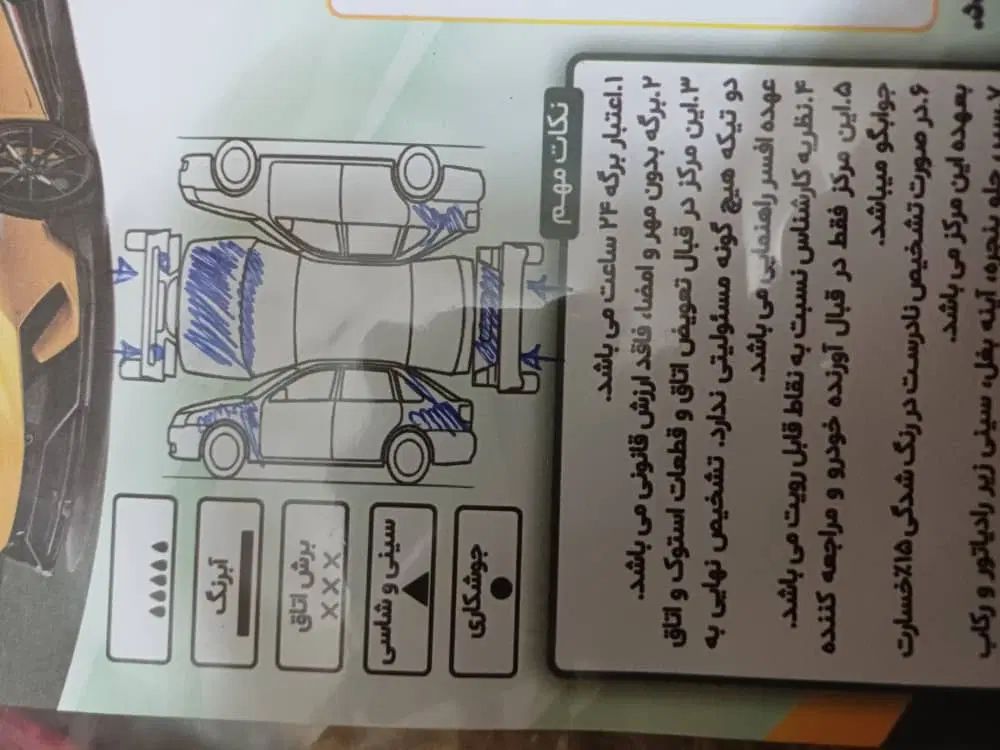 نکات مهم
۱.اعتبار برگه ۲۴ ساعت می باشد.
۲.برگه بدون مهر و امضا، فاقد ارزش قانونی می باشد.
۳.این مرکز در قبال تعویض اتاق و قطعات استوک و اتاق
دو تیکه هیچ گونه مسئولیتی ندارد. تشخیص نهایی به
عهده افسر راهنمایی می باشد.
۴.نظریه کارشناس نسبت به نقاط قابل رویت می باشد.
۵.این مرکز فقط در قبال آورنده خودرو و مراجعه کننده
جوابگو میباشد.
۶.در صورت تشخیص نادرست در رنگ شدگی ۱۵٪ خسارت
بعهده این مرکز می باشد.
جلو پنجره، آینه بغل، سینی زیر رادیاتور و رکاب
آبرنگ
برش اتاق
×××
سینی و شاسی
جوشکاری